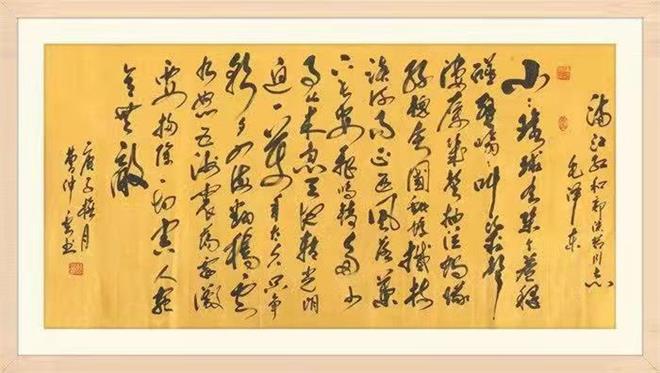 满江红和郭沫若同志
毛泽东
小小环球有几个苍蝇
碰壁嗡嗡叫几声
凄厉几声抽泣蚂蚁
缘槐夸大国蚍蜉撼树
谈何易正西风落叶
下长安飞鸣镝多少
事从来急天地转光阴
迫一万年太久只争
朝夕四海翻腾云
水怒五洲震荡风雷激
要扫除一切害人虫
全无敌
庚子 月
书